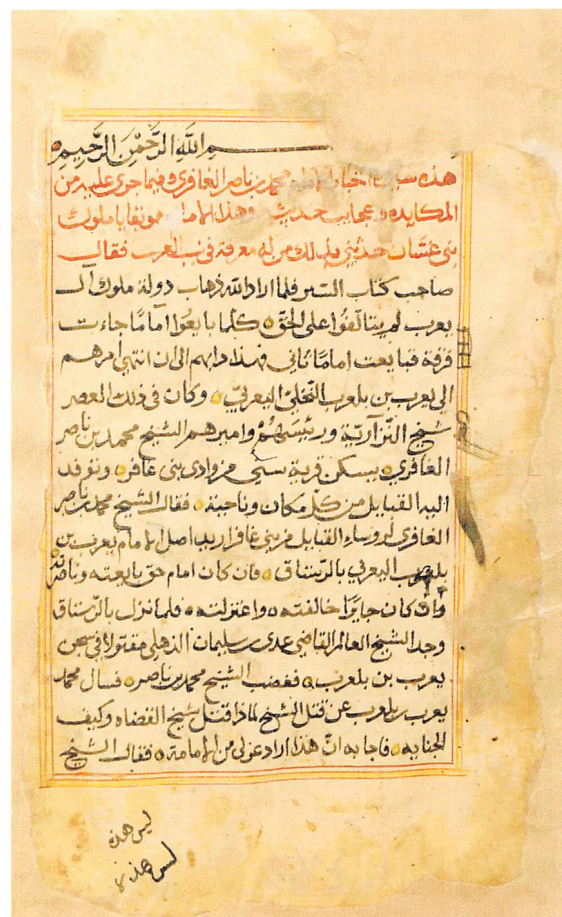 بسم الله الرحمن الرحيم
هذه سيرة اخبار محمد بن ناصر الغافري وفيما جرى عليه من
المكايده وعجايب حديث وهذا الامام مونقفا باملوك
بني غسان حدثني بذلك من له معرفة في نسب العرب فقال
صاحب كتاب السير فلما اراد الله ذهاب دولة ملوك آل
يعرب لم يتألفوا على الحق كلما بايعوا اماما جاءت
فرقة فبايعت اماما ثاني فهذا دابهم الى ان انتهى امرهم
الى يعرب بن بلعرب النخلي اليعربي وكان في ذلك العصر
شيخ النزارية ورئيسهم واميرهم الشيخ محمد بن ناصر
الغافري يسكن قرية ستي من وادي بني غافر وتوفد
اليه القبايل من كل مكان وناحية فقال الشيخ محمد بن ناصر
الغافري لروساء القبايل من بني غافر اريد اصل الامام يعرب بن
بلعرب اليعربي بالرستاق فان كان امام حق بايعته وناصرته
وان كان جايرا خالفته واعتزلته فلما نزل بالرستاق
وجد الشيخ العالم القاضي عدي سليمان الذهلي مقتولا في سجن
يعرب بن بلعرب فغضب الشيخ محمد بن ناصر فسال محمد
يعرب بن بلعرب عن قتل الشيخ لماذا قتل شيخ القضاه وكيف
الجنايه فاجابه ان هذا اراد عزلي من الامامة فقال الشيخ
ليس هذه
ليس هذه لا